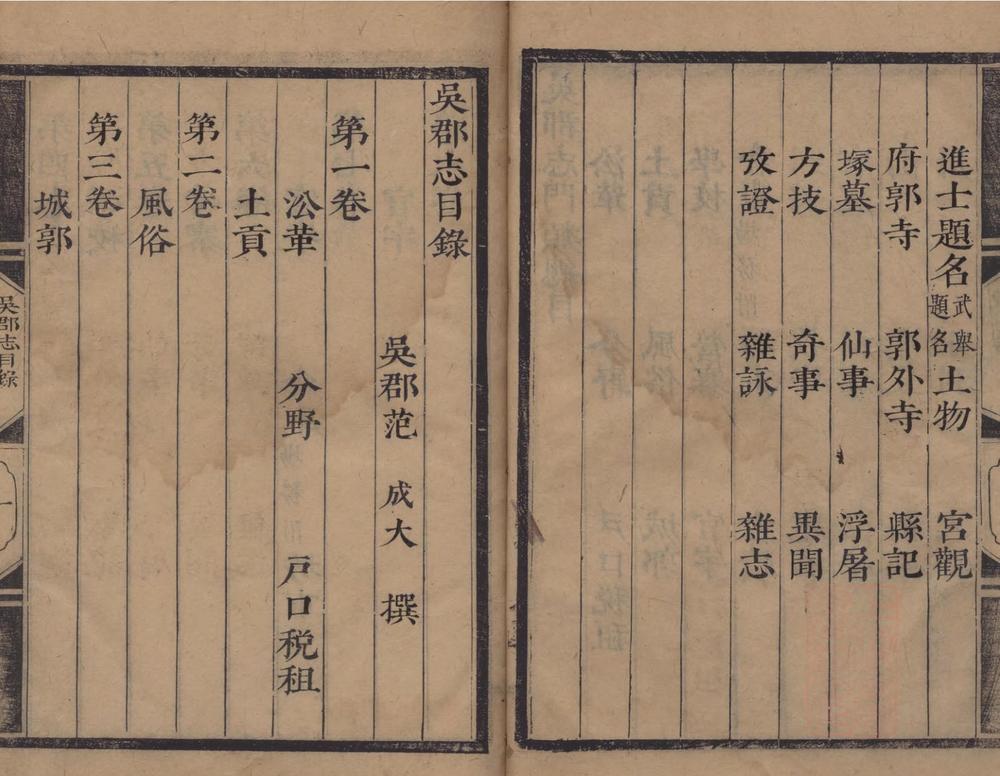 進士題名武舉題名 土物 宮觀
府郭寺 郭外寺 縣記
塚墓 仙事 浮屠
方技 奇事 異聞
攷證 雜詠 雜志
吳郡志目錄
吳郡范 成大 撰
第一卷
㳂革 分野 戸口稅租
土貢
第二卷
風俗
第三卷
城郭
吳郡志目錄
一